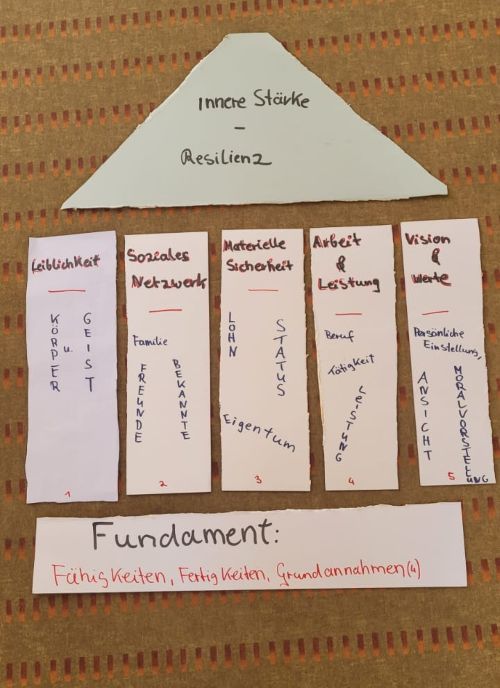 Innere Stärke
–
Resilienz
Leiblichkeit
KÖRPER
u.
GEIST
1
Soziales
Netzwerk
Familie
FREUNDE
BEKANNTE
2
Materielle
Sicherheit
LOHN
STATUS
Eigentum
3
Arbeit
&
Leistung
Beruf
Tätigkeit
LEISTUNG
4
Vision
&
Werte
Persönliche
Einstellung,
ANSICHT
MORALVORSTELLUNG
5
Fundament:
Fähigkeiten, Fertigkeiten, Grundannahmen (4)